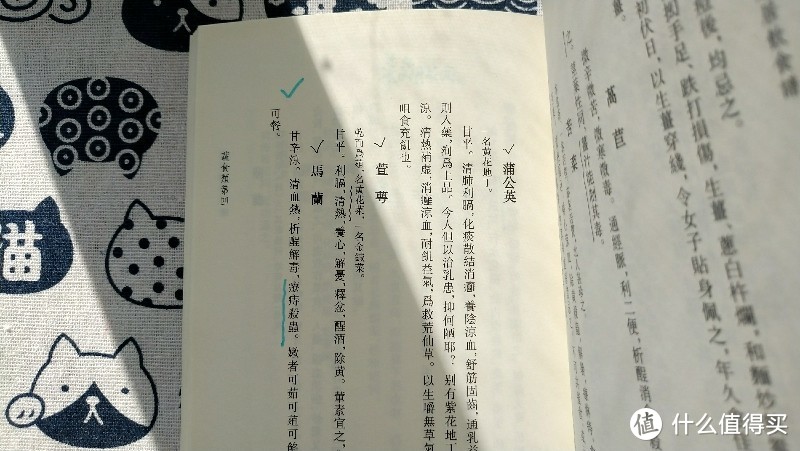 痘後，均忌之。
手足、跌打損傷，生薑、蔥白杵爛，和麵炒
初伏日，以生薑穿綫，令女子貼身佩之，年久
萵苣
微辛微苦，微寒微毒。通經脈，利二便，析酲消
蒲公英
名黃花地丁。
甘平。清肺利膈，化痰散結消癰，養陰涼血，舒筋固齒，通乳益
則入藥，洵爲上品。今人但以治乳患，抑何陋耶？別有紫花地丁
涼。清熱補虛，消癰涼血，耐飢益氣，爲救荒仙草。以生嚼無草氣
咀食充飢也。
萱萼
乾而爲菹，名黃花菜，一名金鍼菜。
甘平。利膈，清熱，養心，解憂，釋忿，醒酒，除黃。葷素宜之，
馬蘭
甘辛涼。清血熱，析酲解毒，療痔殺蟲。嫩者可茹可菹可餡
可餐。
值 什么值得买
猫